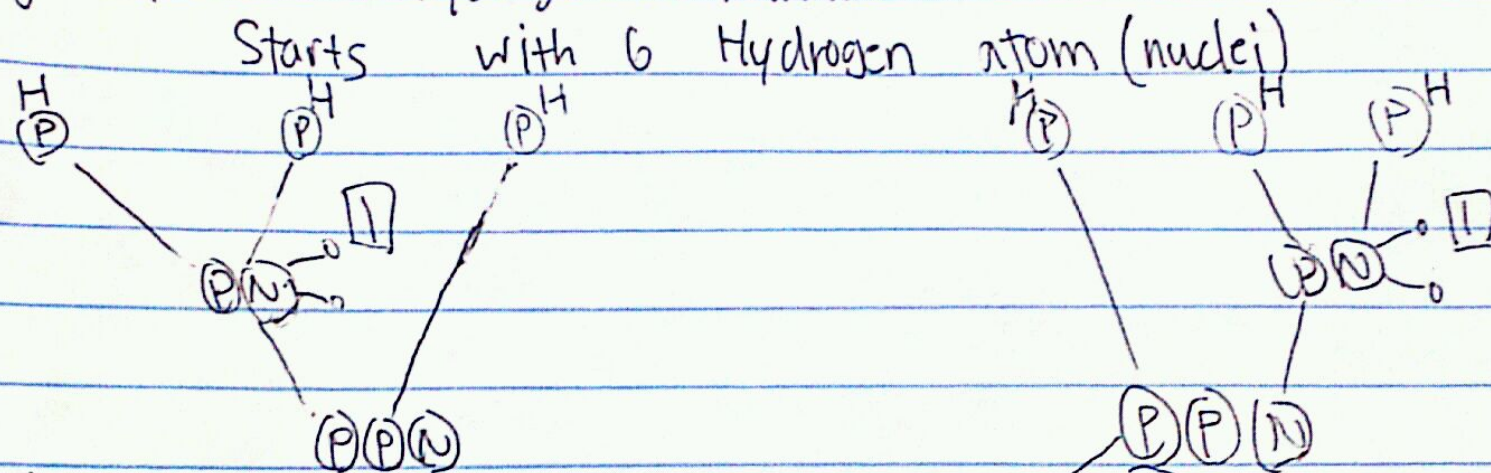 Starts with 6 Hydrogen atom (nuclei)
H H H H H H
P P P P P P
1 1
P N P N
P P N P P N